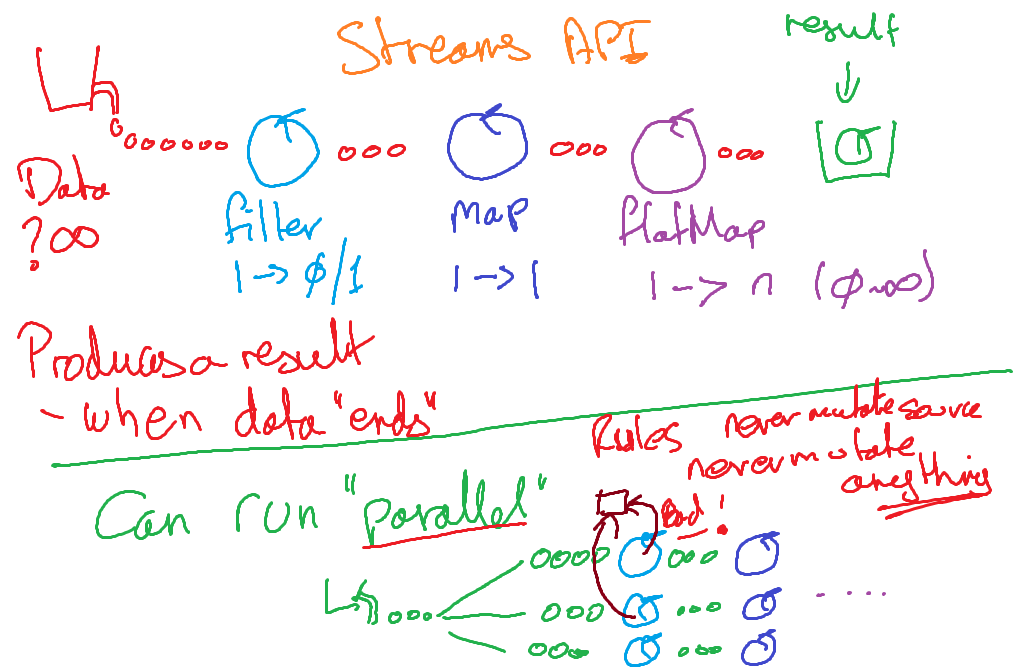 Streams API
result
Data
? ∞
filter
1 -> φ/1
Map
1 -> 1
flatMap
1 -> n (φ~∞)
Produces a result
- when data "ends"
Rules never mutate source
never mutate
anything
Can run "parallel"
Bad!